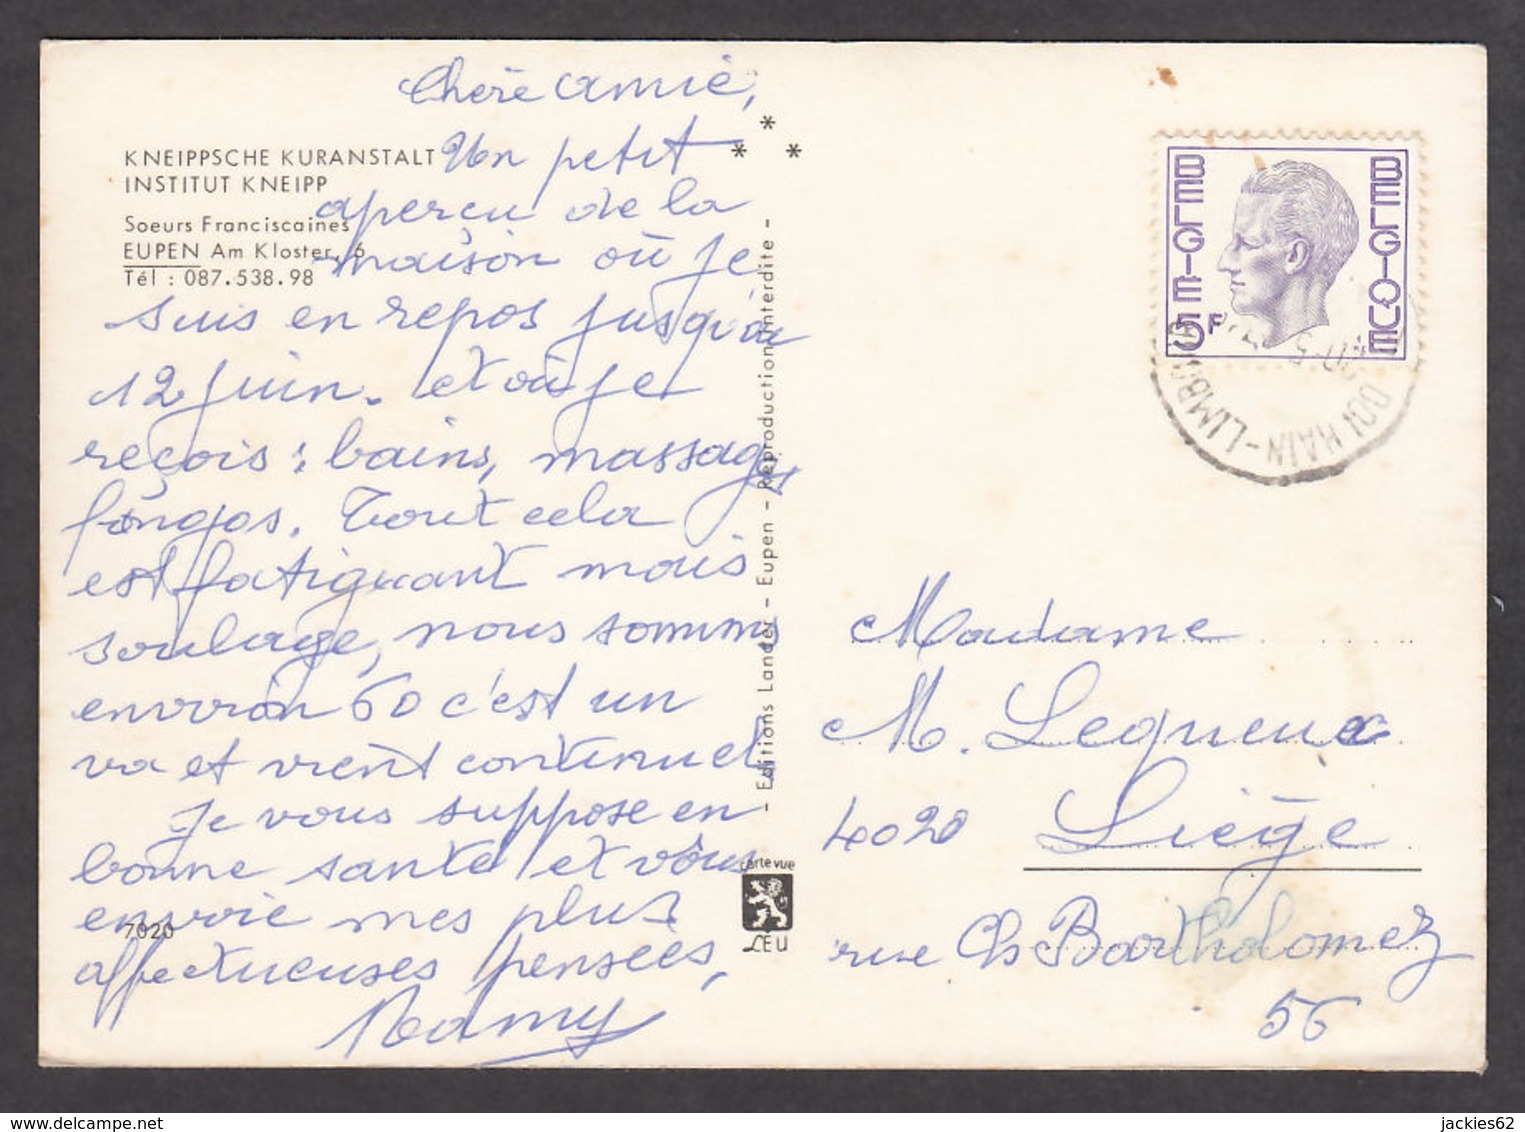 Chère amie,
Un petit
aperçu de la
maison où je
suis en repos jusqu'au
12 juin. et où je
reçois : bains, massages
fangos. Tout cela
est fatiguant mais
soulage, nous sommes
environ 60 c'est un
va et vient continuel,
Je vous suppose en
bonne santé et vous
envoie mes plus
affectueuses pensées,
KNEIPPSCHE KURANSTALT
INSTITUT KNEIPP
Soeurs Franciscaines
EUPEN Am Kloster, 6
Tél : 087.538.98
7020
- Editions Lander - Eupen - Reproduction interdite -
carte vue
LEU
BELGIE
BELGIQUE
5F
DOLHAIN-LIMBOURG
Madame
M. Lequeux
4020 Liège
rue Ch Bartholomez
56
delcampe.net
jackies62